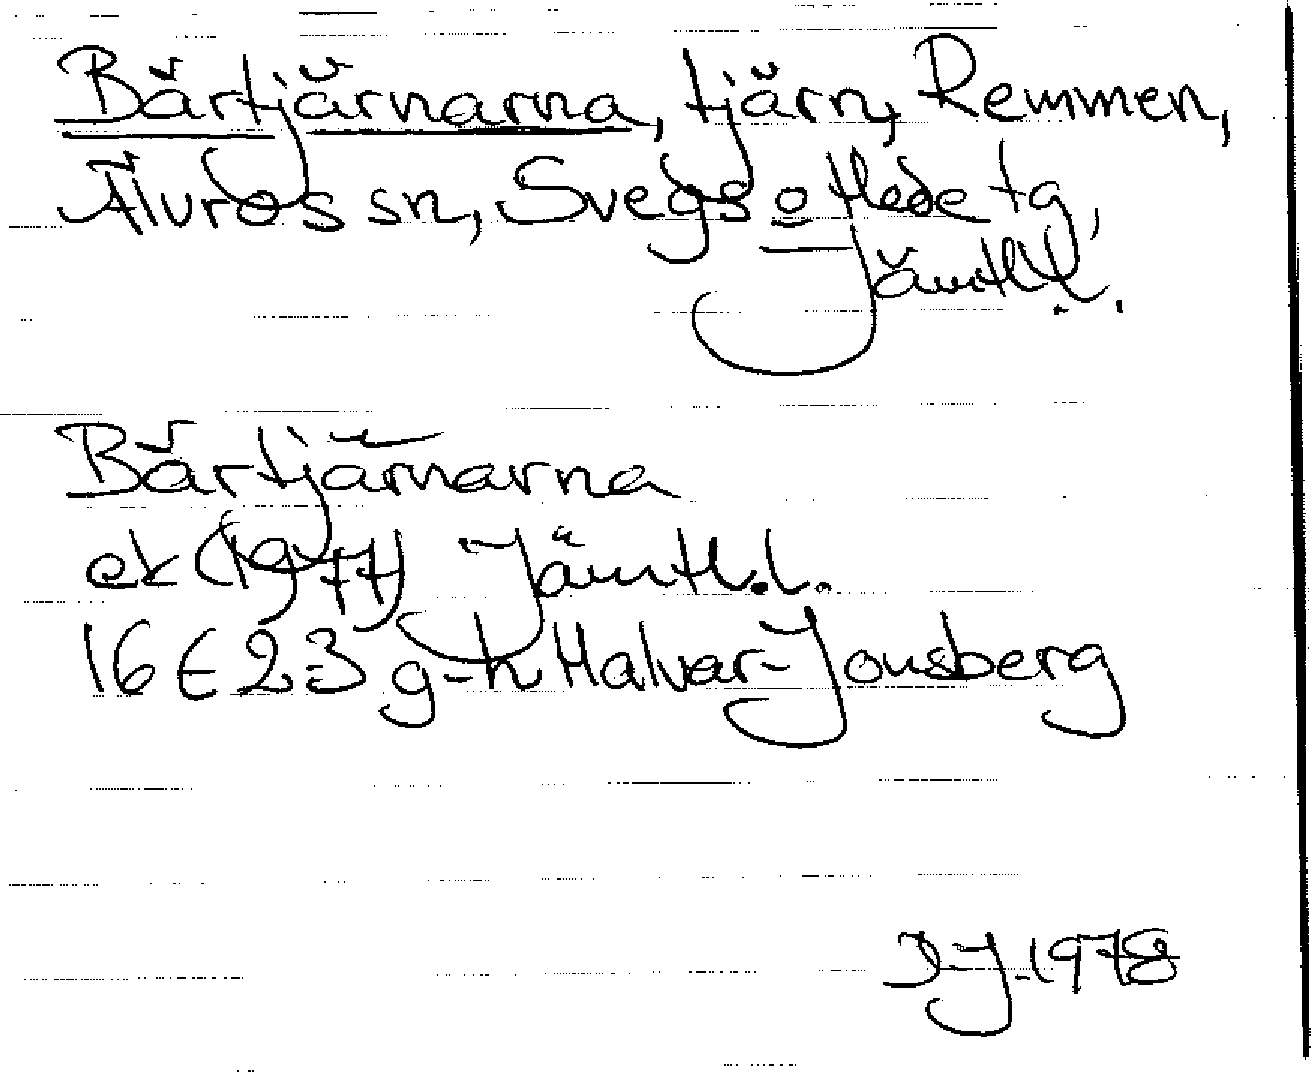 Bärtjärnarna, tjärn, Remmen,
Älvros sn, Svegs o Hede tg,
Jämtl.l.
Bärtjärnarna
ek (1977) Jämtl.l.
16 E 2-3 g-h Halvar-Jonsberg
D-J 1978